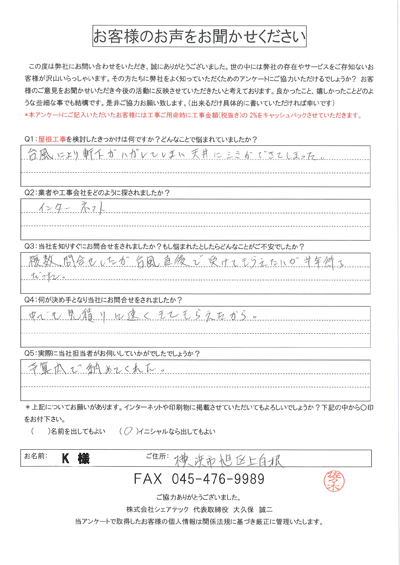 お客様のお声をお聞かせください
この度は弊社にお問い合わせをいただき、誠にありがとうございました。世の中には弊社の存在やサービスをご存知ないお
客様が沢山いらっしゃいます。その方たちに弊社をよく知っていただくためのアンケートにご協力いただけるでしょうか？ お客
様のご意見をお聞かせいただき今後の活動に反映させていきたいと考えております。良かったこと、嬉しかったことどのよ
うな些細な事でも結構です。是非ご協力お願い致します。（出来るだけ具体的に書いていただければ幸いです）
*本アンケートにご記入いただいたお客様には工事ご用命時に工事金額(税抜き)の2%をキャッシュバックさせていただきます。
Q1:屋根工事を検討したきっかけは何ですか？どんなことで悩まれていましたか？
台風により軒下がハガレてしまい天井にシミができてしまった。
Q2:業者や工事会社をどのように探されましたか？
インターネット
Q3:当社を知りすぐにお問合せをされましたか？もし悩まれたとしたらどんなことがご不安でしたか？
複数問合せしたが台風直後で受けてもらえたいが半年待る
Q4:何が決め手となり当社にお問合せをされましたか？
中でも見積りに速くきてもらえたから。
Q5:実際に当社担当者がお伺いしていかがでしたでしょうか？
予算内で納めてくれた。
*上記についてお願いがあります。インターネットや印刷物に掲載させていただいてもよろしいでしょうか？下記の中から○印
をお付下さい。
(　　)名前を出してもよい　(○)イニシャルなら出してもよい
お名前: K 様　ご住所: 横浜市旭区上白根
FAX 045-476-9989
ご協力ありがとうございました。
株式会社シェアテック 代表取締役 大久保 誠二
当アンケートで取得したお客様の個人情報は関係法規に基づき厳正に管理いたします。